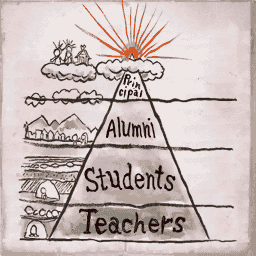 Prin
cipal
Alumni
Students
Teachers